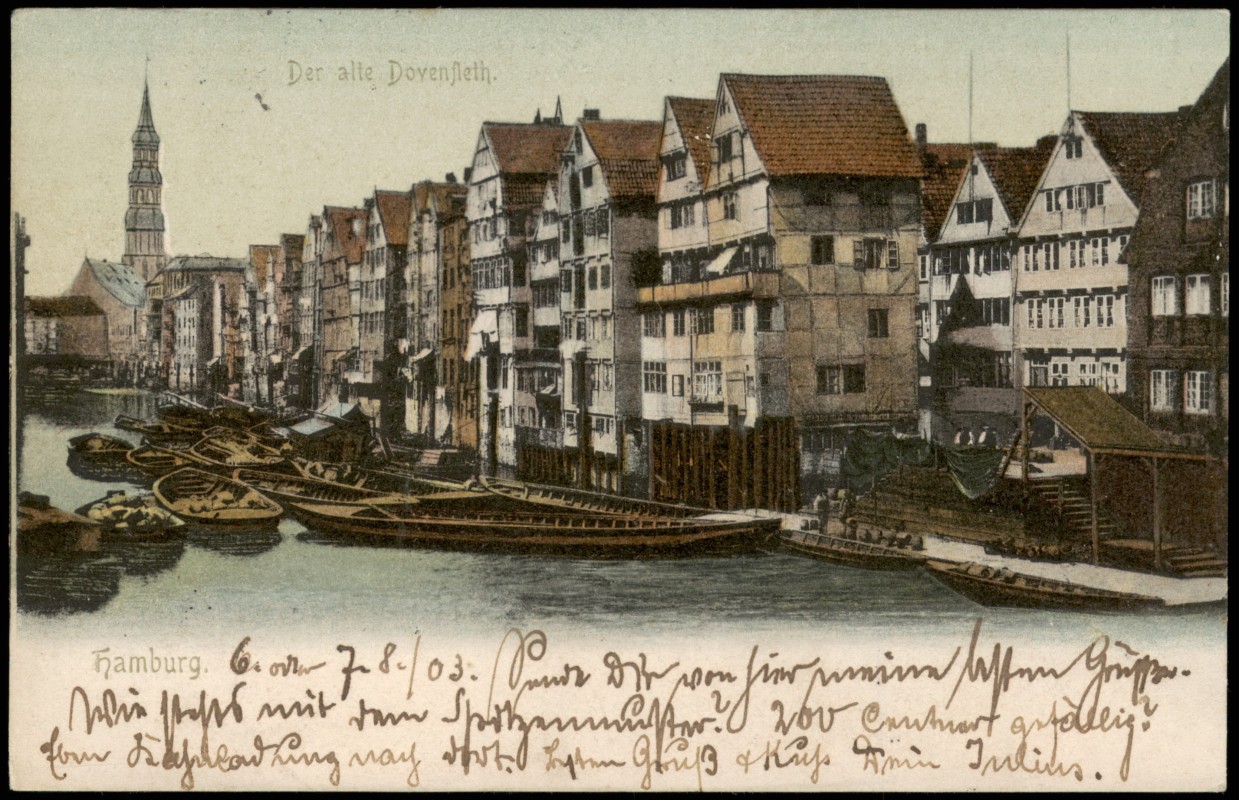 Der alte Dovenfleth.
Hamburg. 6. oder 7.-8./03. Sende Dir von hier meine besten Grüsse.
Wie stehts mit dem Spitzenmuster? 200 Centner gefällig?
Kahnladung nach dort. besten Gruß & Kuss Dein Julius.